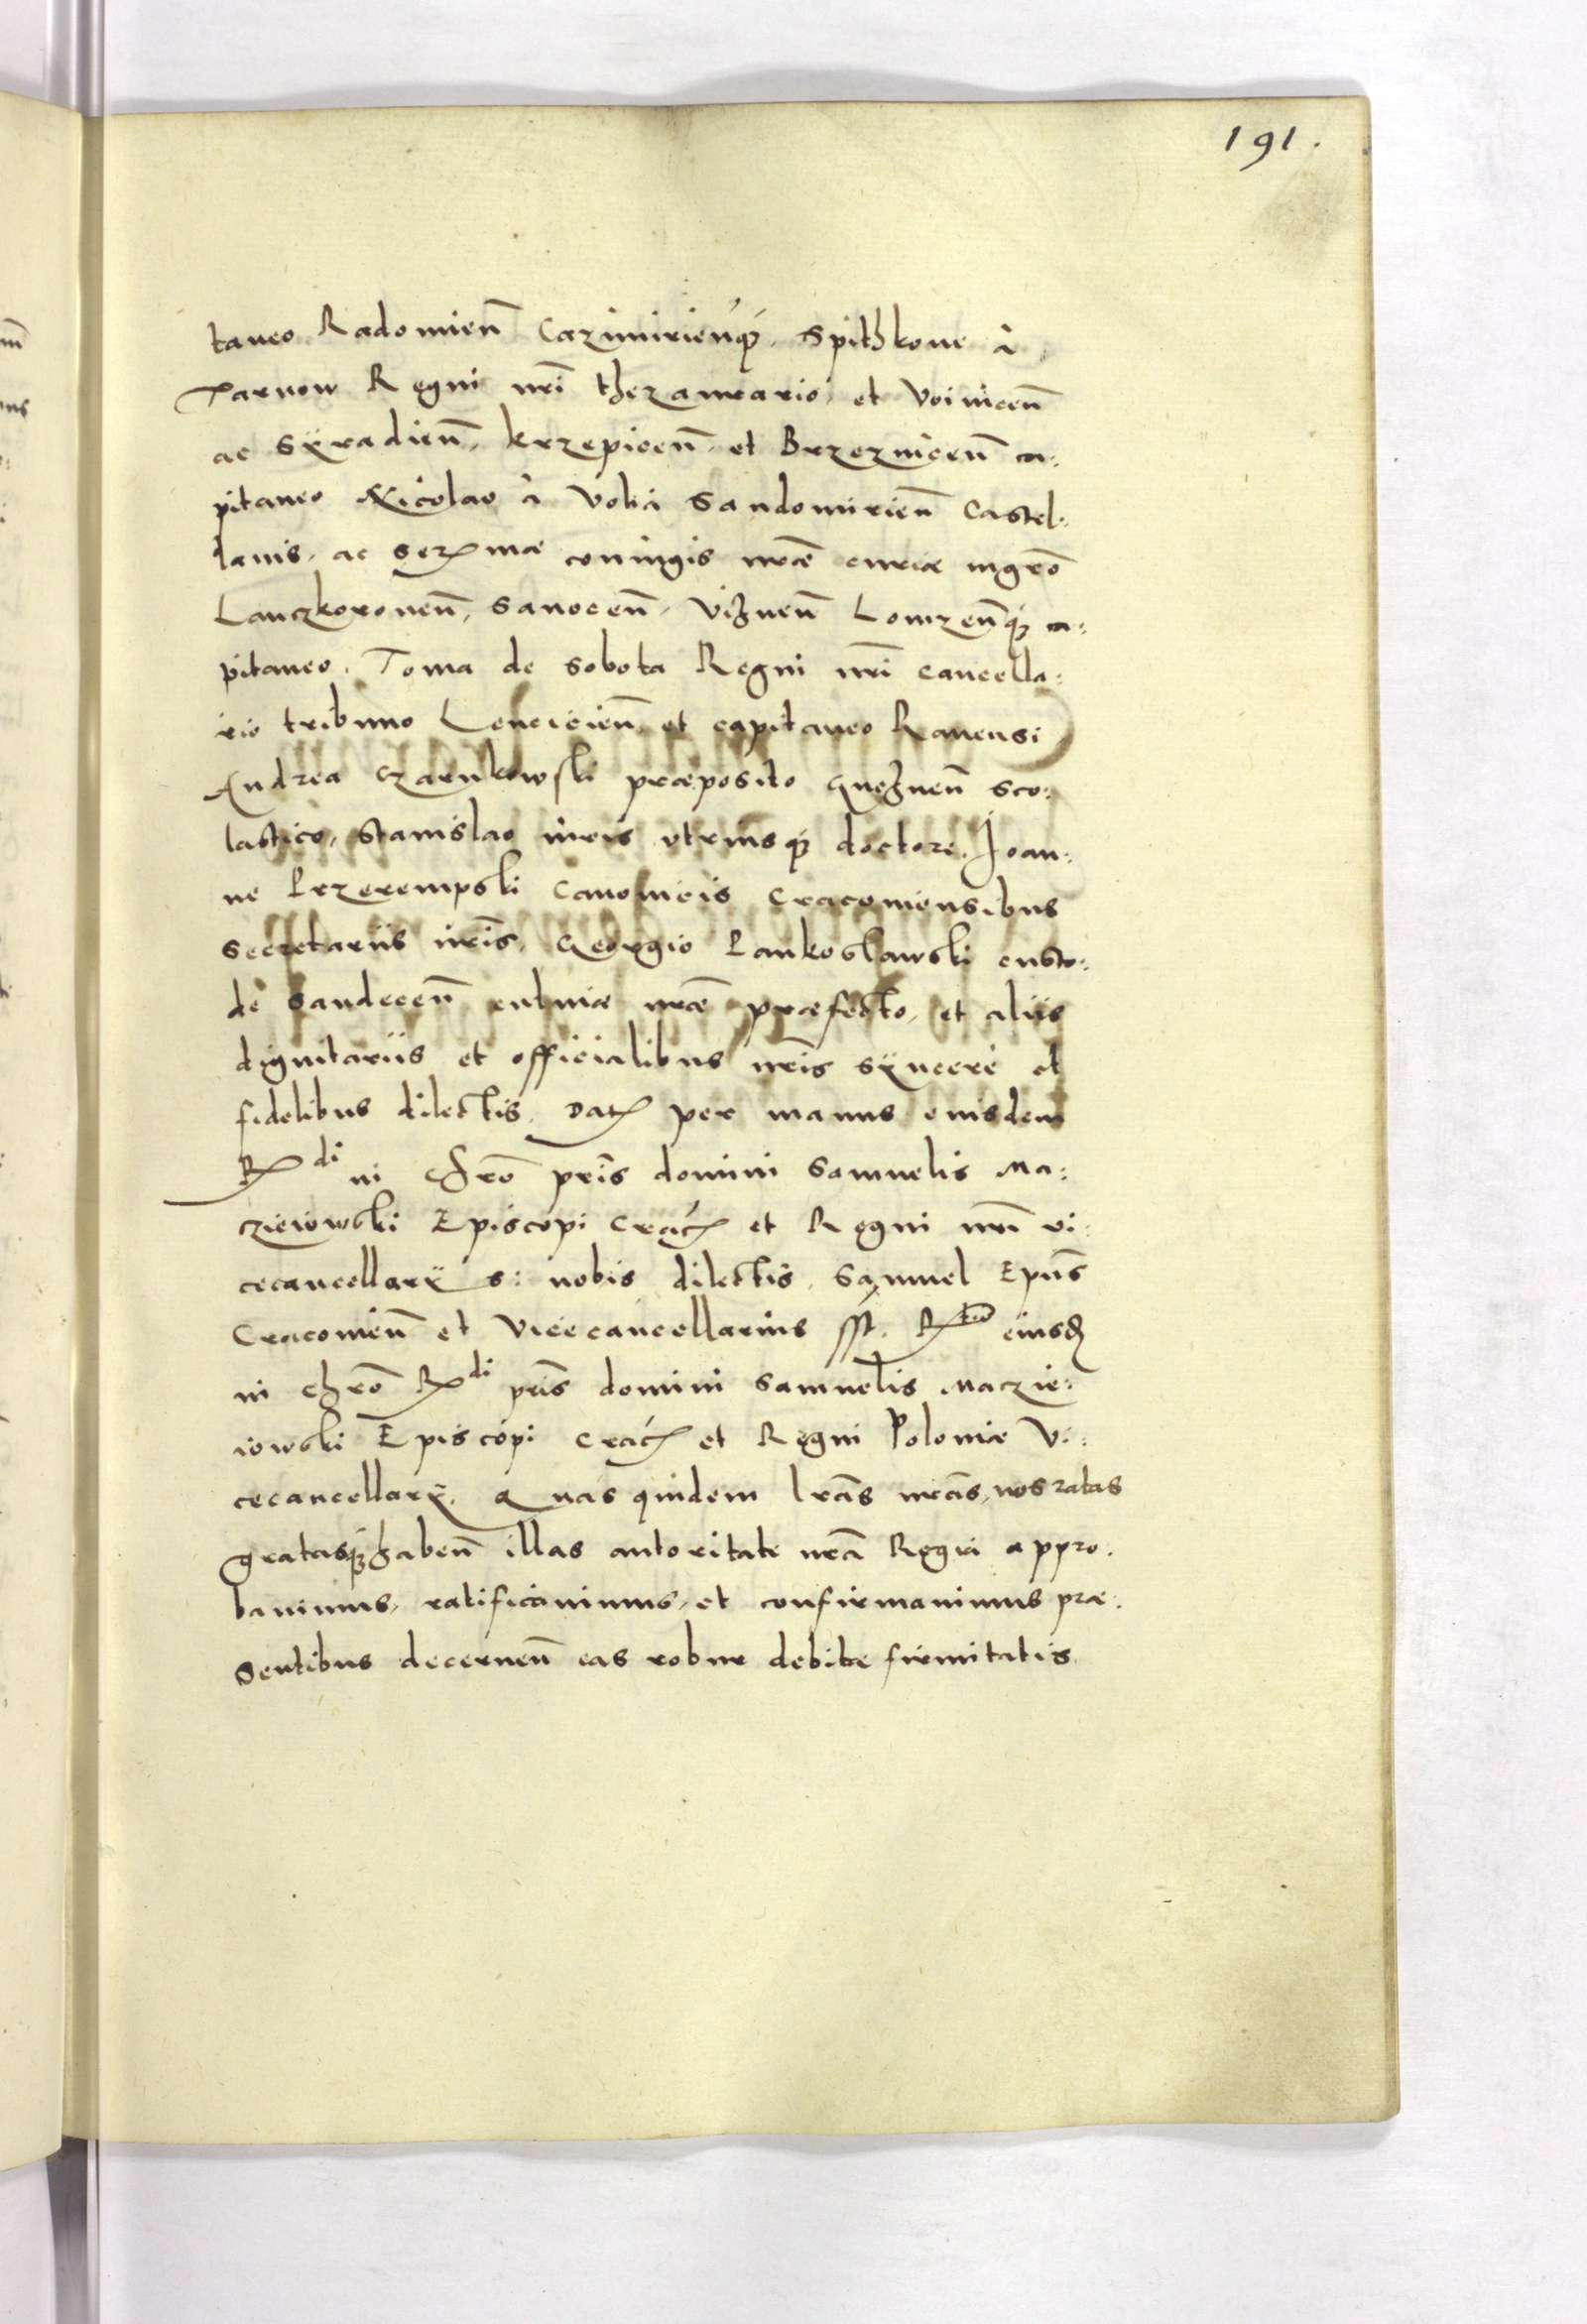 191.
taneo Radomien̄ Cazimirien̄q3, Spithkone à
Tarnow Regni nr̄i thezaurario, et Voinicen̄
ac Syradien̄, Krzepicen̄, et Brzeznicen̄ ca:
pitaneo Nicolao à Volia Sandomirien̄ Castel:
lanis, ac Serꝫmae coniugis nr̄ae curiae mgrō
Lanczkoronen̄, Sanocen̄, Viznen̄ Lomzen̄q3 ca:
pitaneo, Toma de Sobota Regni nr̄i Cancella:
rio tribuno Lencicien̄, et capitaneo Ravensi
Andrea Czarnkowski praeposito Gneznen̄ Sco:
lastico, Stanislao iuris utriusq3 doctore, Joan:
ne Przerempski Canonicis Cracoviensibus
Secretariis nr̄is, Georgio Pankoslawski custo:
de Sandecen̄ culinae nr̄ae praefecto, et aliis
dignitariis et officialibus nr̄is syncerè et
fidelibus dilectis. Datꝫ per manus eiusdem
Rꝫdi in Chrō pr̄is domini Samuelis Ma:
czieiowski Episcopi Cracꝫ et Regni nr̄i vi:
cecancellarÿ s: nobis dilectis, Samuel Ep̄us
Cracovien̄ et Vicecancellarius sst. Rꝫtio eiusdꝫ
in Chrō Rꝫdi pr̄is domini Samuelis Maczie:
iowski Episcopi Cracꝫ et Regni Poloniae Vi:
cecancellarÿ, Quas quidem lr̄as nr̄as, nos ratas
gratasq3 haben̄ illas autoritate nr̄a Regia appro:
bavimus, ratificavimus, et confirmavimus prae:
sentibus decernen̄ eas robur debitae firmitatis